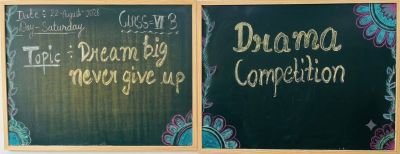 Date: 22-August-2026
Day-Saturday
CLASS-VI B
Topic: Dream big
never give up
Drama
Competition